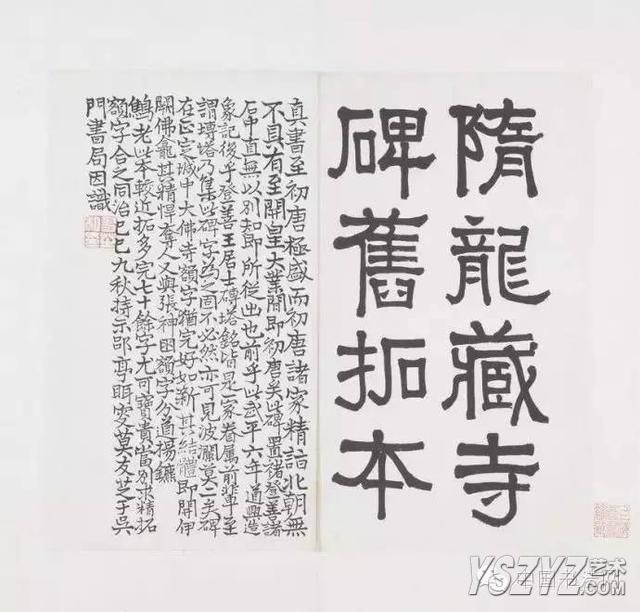 隋龍藏寺
碑舊拓本
真書至初唐極盛而初唐諸家精詣北朝無
不具有至開皇大業間即初唐矣此碑置褚登善諸
石中直無以別知即所從出也前乎此武平六年道興造
象記後乎登善王居士磚塔銘皆是一家眷屬前輩至
謂磚塔乃集此碑字為之固不必然亦可見波瀾莫二矣碑
在正定城中大佛寺額字猶完好如新其結體即開伊
闕佛龕其精悍奪人又與張神額字分道揚鑣
鶴老此本較近拓多完七十餘字尤可寶貴當別求精拓
額字合之同治己巳九秋持示郘亭眲叟莫友芝于吳
門書局因識
YSZYZ艺术.com